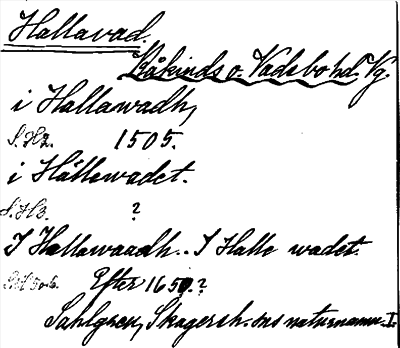 Hallavad.
Kåkinds o. Vadsbo hd. Vg.
i Hallawadh,
S. H2. 1505.
i Hållewadet.
S. H3. ?
I Hallewaadh.. I Halle wadet.
Efter 1650.?
Sahlgren, Skagersh. sns naturnamn. I.